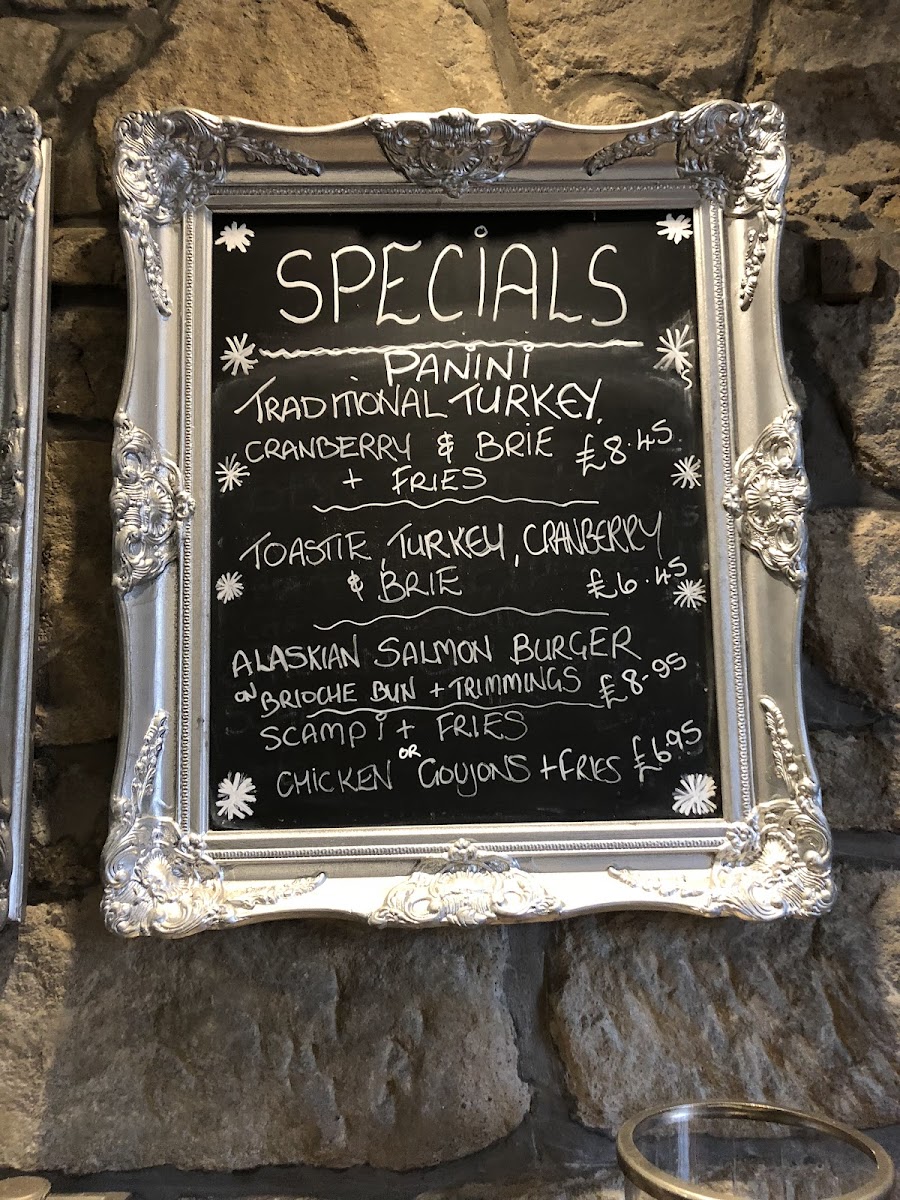 SPECIALS
PANINI
TRADITIONAL TURKEY,
CRANBERRY & BRIE £8.45
+ FRIES
TOASTIE, TURKEY, CRANBERRY
& BRIE £6.45
ALASKIAN SALMON BURGER
ON BRIOCHE BUN + TRIMMINGS £8.95
SCAMPI + FRIES
OR
CHICKEN GOUJONS + FRIES £6.95